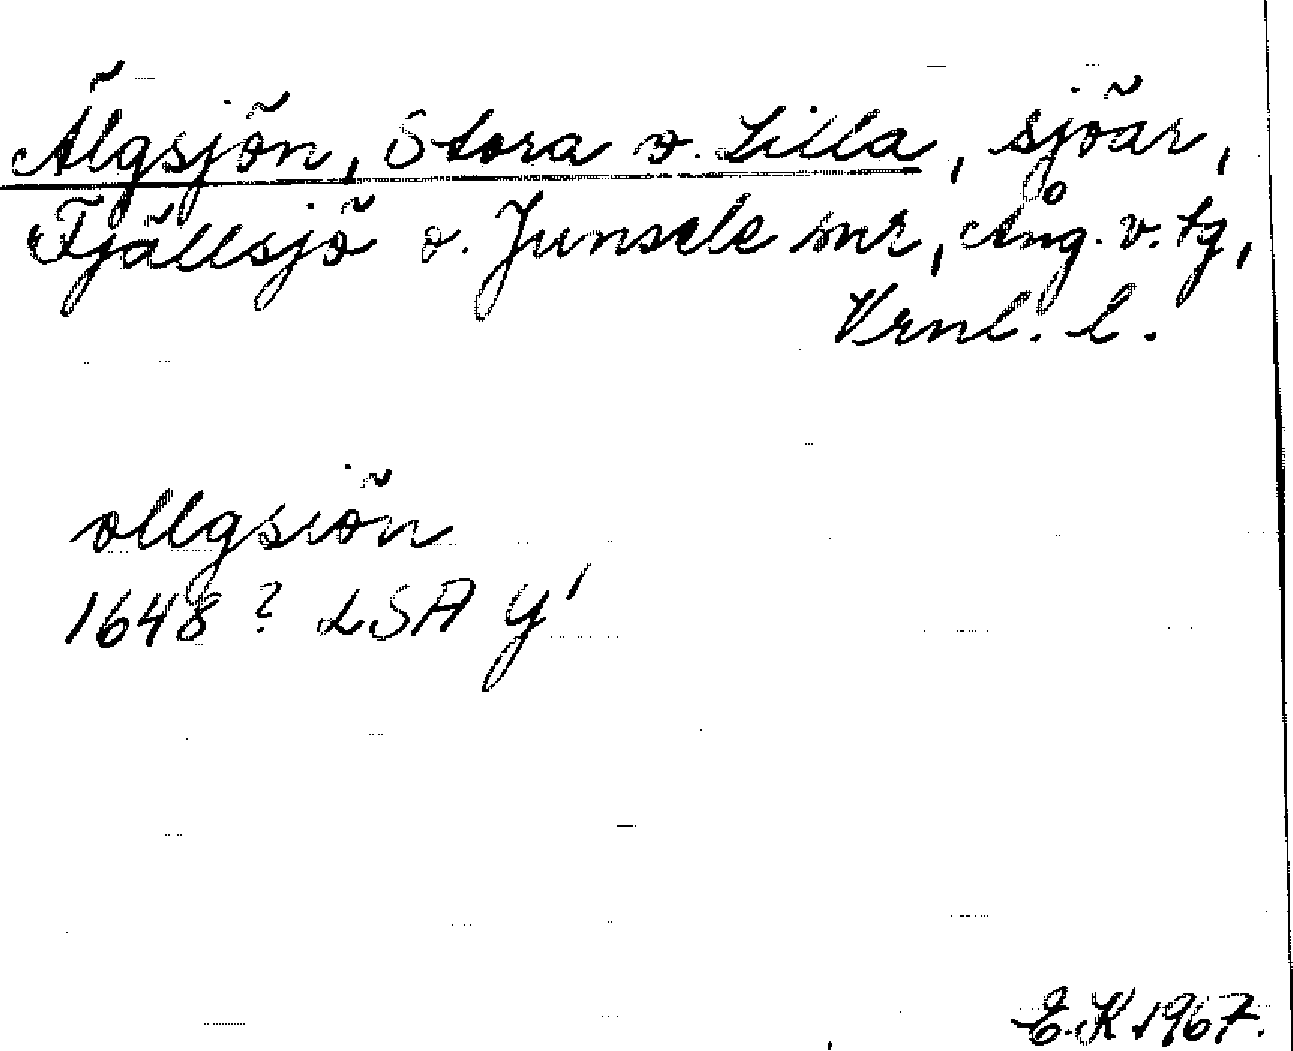 Älgsjön, Stora o. Lilla, sjöar,
Fjällsjö o. Junsele snr, Ång. v. tg,
Vrnl. l.
ollgsiön
1648? LSA Y¹
E.K 1967.